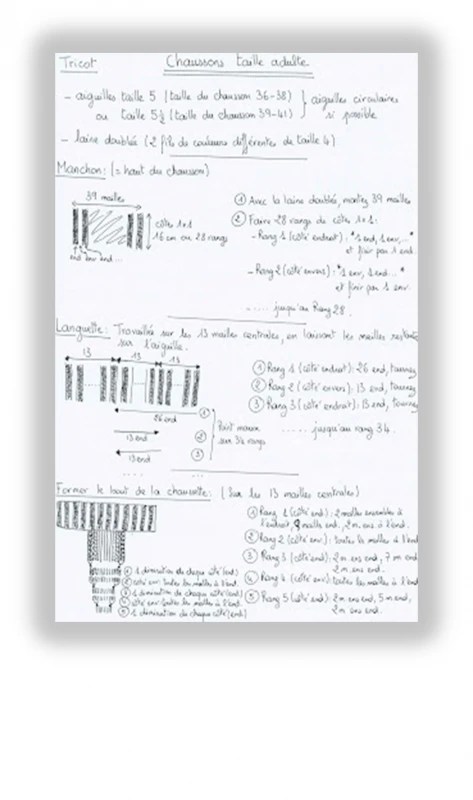 Tricot
Chaussons taille adulte
- aiguilles taille 5 (taille du chausson 36-38)
ou taille 5½ (taille du chausson 39-41)
aiguilles circulaires
si possible
- laine doublée (2 fils de couleurs différentes de taille 4)
Manchon: (= haut du chausson)
39 mailles
côtes 1x1
16 cm ou 28 rangs
end env end...
① Avec la laine doublée, montez 39 mailles
② Faire 28 rangs de côtes 1x1:
- Rang 1 (côté endroit): "1 end, 1 env,..."
et finir par 1 end.
- Rang 2 (côté envers): "1 env, 1 end..."
et finir par 1 env.
..... jusqu'au Rang 28.
Languette: Travaillée sur les 13 mailles centrales, en laissant les mailles restantes
sur l'aiguille.
13 13 13
26 end ①
13 end ②
13 end ③
Point mousse
sur 34 rangs
① Rang 1 (côté endroit): 26 end, tournez
② Rang 2 (côté envers): 13 end, tournez
③ Rang 3 (côté endroit): 13 end, tournez
..... jusqu'au rang 34.
Former le bout de la chaussette: (Sur les 13 mailles centrales)
① 1 diminution de chaque côté (end)
② côté env: toutes les mailles à l'end.
③ 1 diminution de chaque côté (end)
④ côté env: toutes les mailles à l'end.
⑤ 1 diminution de chaque côté (end)
① Rang 1 (côté end): 2 mailles ensembles à
l'endroit, 9 mailles end, 2 m. ens à l'end.
② Rang 2 (côté env): toutes les mailles à l'end
③ Rang 3 (côté end): 2 m. ens end, 7 m end
2m ens end.
④ Rang 4 (côté env): toutes les mailles à l'end
⑤ Rang 5 (côté end): 2m ens end, 5 m end,
2m ens end.